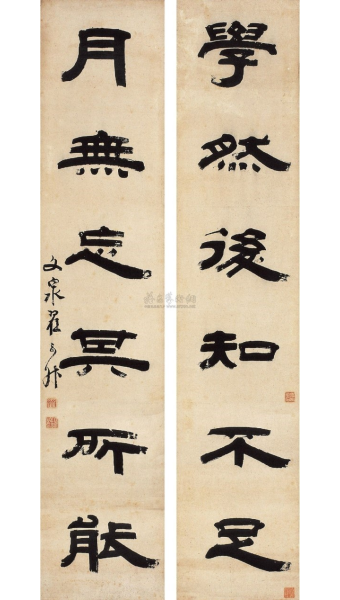 學然後知不足
月無忘其所能
文泉翟云升